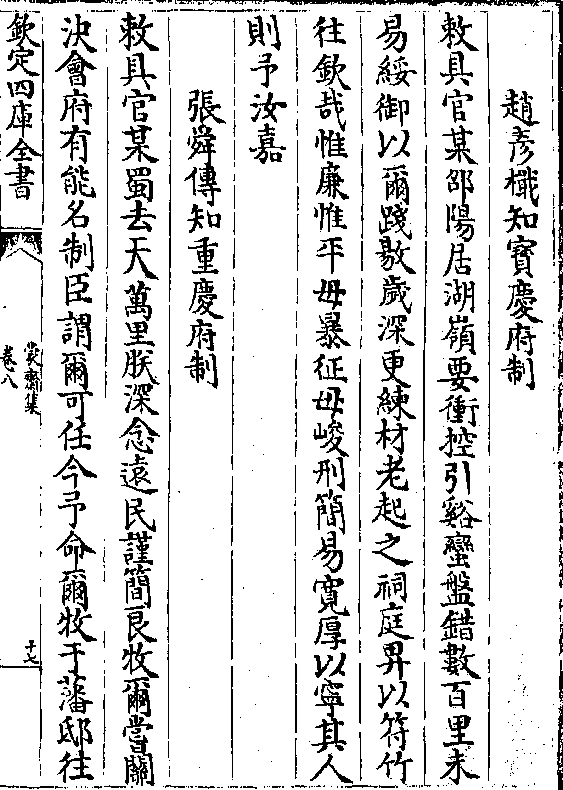 趙彥櫼知寶慶府制
敕具官某邵陽居湖嶺要衝控引谿蠻盤錯數百里未
易綏御以爾踐敭歲深更練材老起之祠庭畀以符竹
往欽哉惟廉惟平毋暴征毋峻刑簡易寛厚以寧其人
則予汝嘉
張舜傳知重慶府制
敕具官某蜀去天萬里朕深念遠民謹簡良牧爾嘗關
決會府有能名制臣謂爾可任今予命爾牧于藩邸往
欽定四庫全書
蒙齋集
卷八
十七